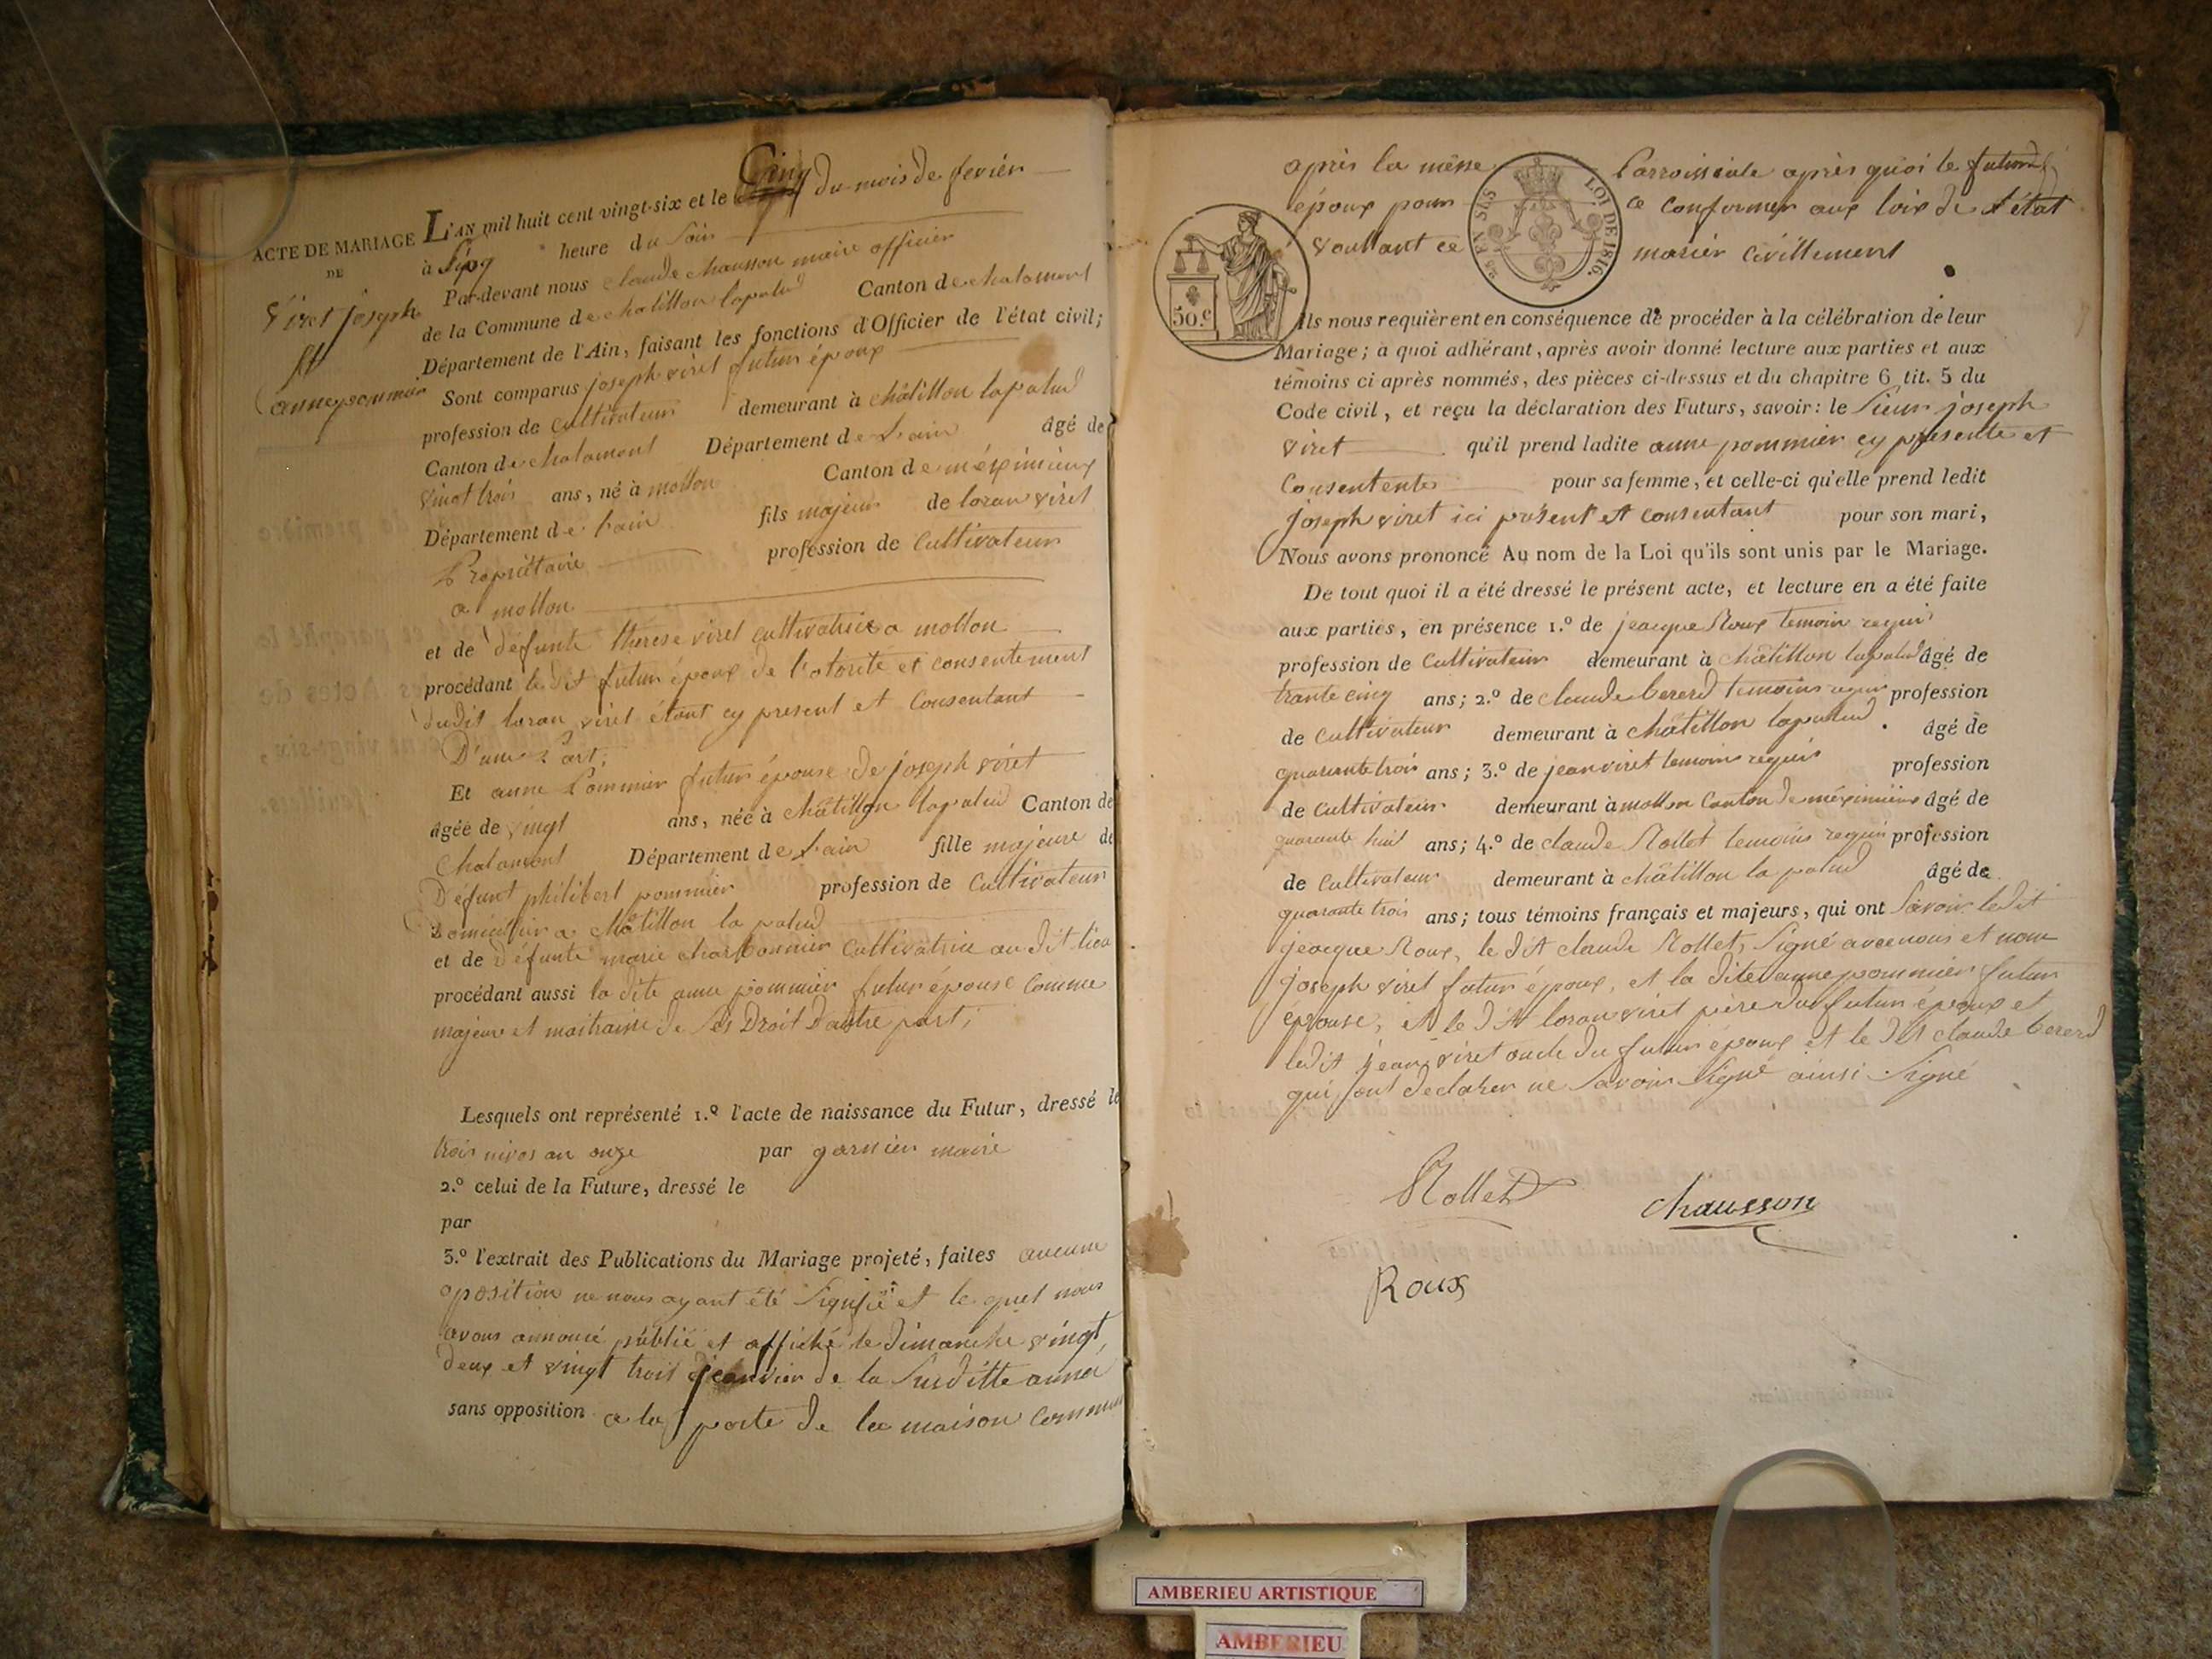 ACTE DE MARIAGE
DE
Viret joseph
Et
anne pommier
L'AN mil huit cent vingt-six et le Cinq du mois de fevier
à heure du Soir
Par-devant nous claude chausson maire officier
de la Commune de chatillon lapalud Canton de chalamont
Département de l'Ain, faisant les fonctions d'Officier de l'état civil;
Sont comparus joseph viret futur époux
profession de Cultivateur demeurant à châtillon lapalud
Canton de chalamont Département de Lain âgé de
vingt trois ans, né à mollon Canton de méximieux
Département de Lain fils majeur de loran viret
Propriétaire profession de Cultivateur
a mollon
et de defunte therese viret cultivatrice a mollon
procédant le dit futur époux de l'otorité et consentement
dudit loran viret étant cy present et Consentant
D'une Part;
Et anne Pommier futur épouse de joseph viret
âgée de vingt ans, née à châtillon lapalud Canton de
Chalamont Département de Lain fille majeure de
Défunt philibert pommier profession de Cultivateur
a châtillon la palud
et de défunte marie charbonnier Cultivatrice au dit lieu
procédant aussi la dite anne pommier futur épouse Comme
majeure et maitraise de Ses Droit D'autre part;
Lesquels ont représenté 1.º l'acte de naissance du Futur, dressé le
trois nivos an onze par garnier maire
2.º celui de la Future, dressé le
par
3.º l'extrait des Publications du Mariage projeté, faites aucune
oposition ne nous ayant été Signifié et le quel nous
avons annoncé publié et affiché le dimanche vingt
deux et vingt trois de la Susditte anné
sans opposition a la porte de la maison Commune
après la messe Parroissiale après quoi le futur
époux pour ce conformer aux loix de l'état
voullant ce marier Civillement
50.C
LOI DE 1816.
Ils nous requièrent en conséquence de procéder à la célébration de leur
Mariage; à quoi adhérant, après avoir donné lecture aux parties et aux
témoins ci après nommés, des pièces ci-dessus et du chapitre 6 tit. 5 du
Code civil, et reçu la déclaration des Futurs, savoir: le Sieur joseph
viret qu'il prend ladite anne pommier cy presente et
Consentente pour sa femme, et celle-ci qu'elle prend ledit
joseph viret ici présent et consentant pour son mari,
Nous avons prononcé Au nom de la Loi qu'ils sont unis par le Mariage.
De tout quoi il a été dressé le présent acte, et lecture en a été faite
aux parties, en présence 1.º de jeacque Roux temoin requi
profession de Cultivateur demeurant à châtillon lapalud âgé de
trante cinq ans; 2.º de claude bererd temoins requi profession
de Cultivateur demeurant à châtillon lapalud. âgé de
quarante trois ans; 3.º de jean viret temoins requis profession
de Cultivateur demeurant à mollon Canton de méximieux âgé de
quarante huit ans; 4.º de claude Rollet temoins requis profession
de Cultivateur demeurant à châtillon la palud âgé de
quarante trois ans; tous témoins français et majeurs, qui ont Savoir ledit
jeacque Roux, le dit claude Rollet, Signé avec nous et non
joseph viret futur époux, et la dite anne pommier futur
épouse, et le dit loran viret père du futur époux et
ledit jean viret oncle du futur époux et le dit claude bererd
qui ont declarer ne Savoir Signé ainsi Signé
Rollet
chausson
Roux
AMBERIEU ARTISTIQUE
AMBERIEU